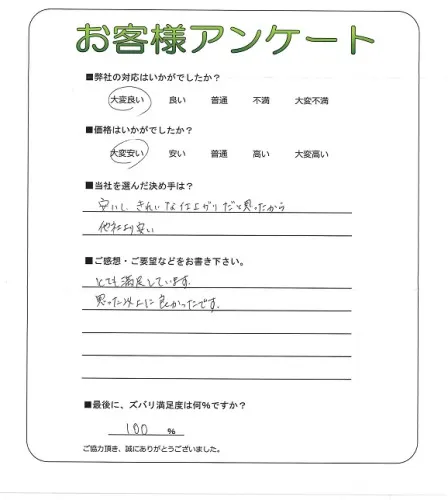 お客様アンケート
■弊社の対応はいかがでしたか？
大変良い 良い 普通 不満 大変不満
■価格はいかがでしたか？
大変安い 安い 普通 高い 大変高い
■当社を選んだ決め手は？
安いし、きれいな仕上がりだと思ったから
他社より安い
■ご感想・ご要望などをお書き下さい。
とても満足しています。
思った以上に良かったです。
■最後に、ズバリ満足度は何％ですか？
100 ％
ご協力頂き、誠にありがとうございました。